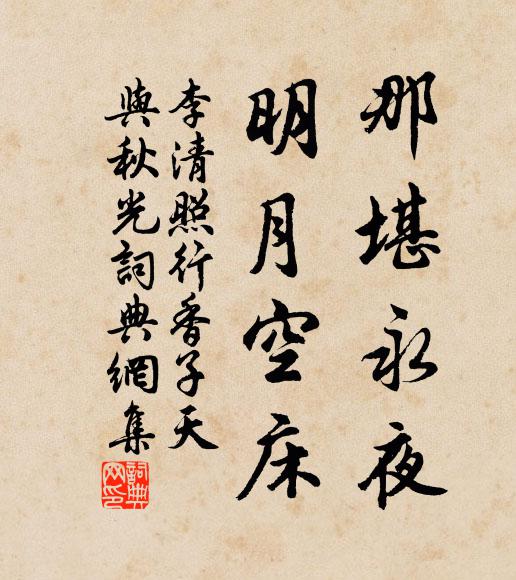 那堪永夜
明月空床
李清照行香子天
與秋光詞典網集
詞典網印